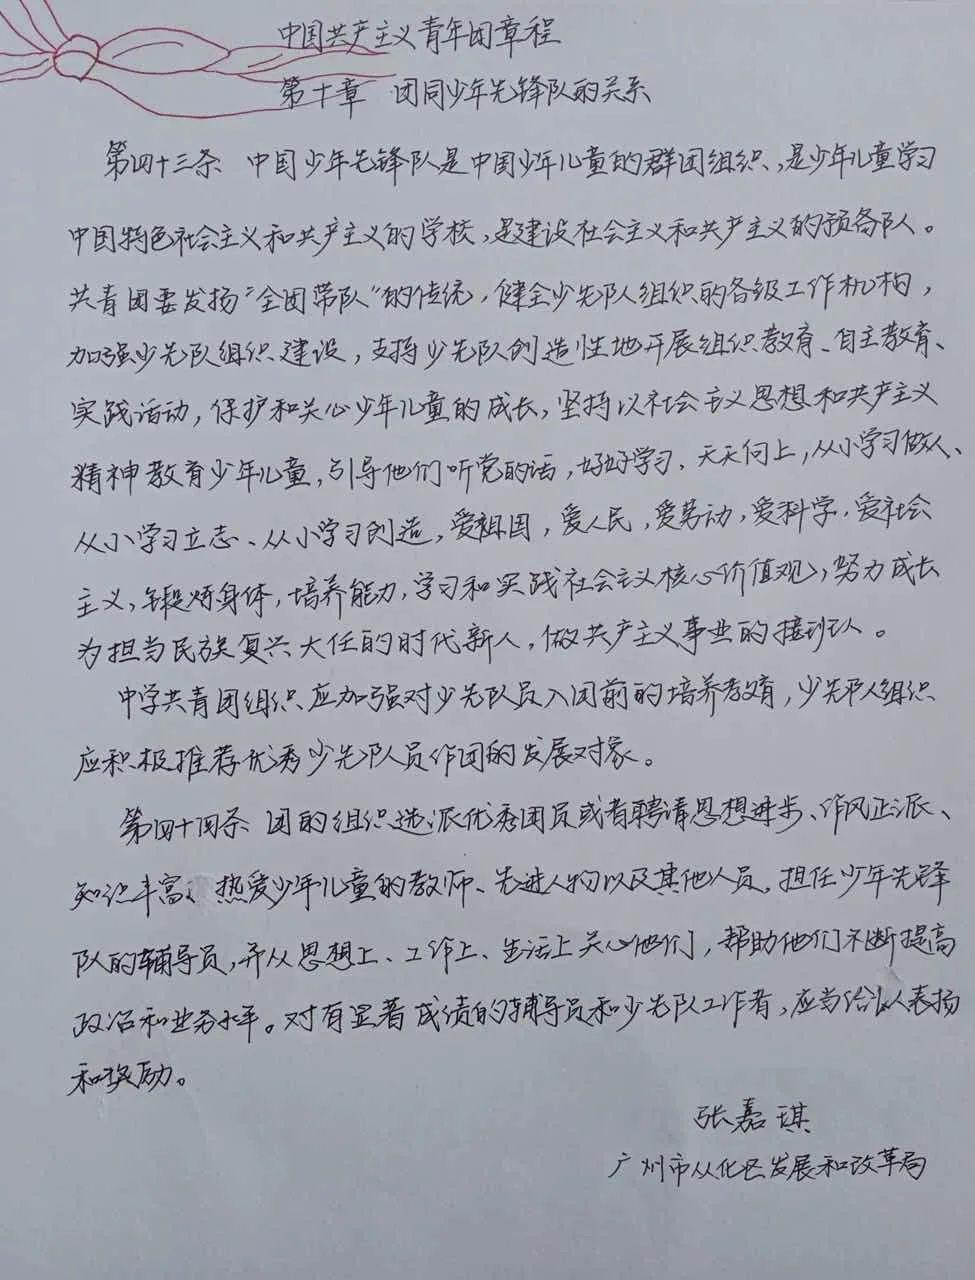 中国共产主义青年团章程
第十章 团同少年先锋队的关系
第四十三条 中国少年先锋队是中国少年儿童的群团组织、是少年儿童学习
中国特色社会主义和共产主义的学校，是建设社会主义和共产主义的预备队。
共青团要发扬“全团带队”的传统，健全少先队组织的各级工作机构，
加强少先队组织建设，支持少先队创造性地开展组织教育、自主教育、
实践活动，保护和关心少年儿童的成长，坚持以社会主义思想和共产主义
精神教育少年儿童，引导他们听党的话，好好学习、天天向上，从小学习做人、
从小学习立志、从小学习创造，爱祖国，爱人民，爱劳动，爱科学，爱社会
主义，锻炼身体，培养能力，学习和实践社会主义核心价值观，努力成长
为担当民族复兴大任的时代新人，做共产主义事业的接班人。
中学共青团组织应加强对少先队员入团前的培养教育，少先队组织
应积极推荐优秀少先队员作团的发展对象。
第四十四条 团的组织选派优秀团员或者聘请思想进步、作风正派、
知识丰富、热爱少年儿童的教师、先进人物以及其他人员，担任少年先锋
队的辅导员，并从思想上、工作上、生活上关心他们，帮助他们不断提高
政治和业务水平。对有显著成绩的辅导员和少先队工作者，应当给以表扬
和奖励。
张嘉琪
广州市从化区发展和改革局